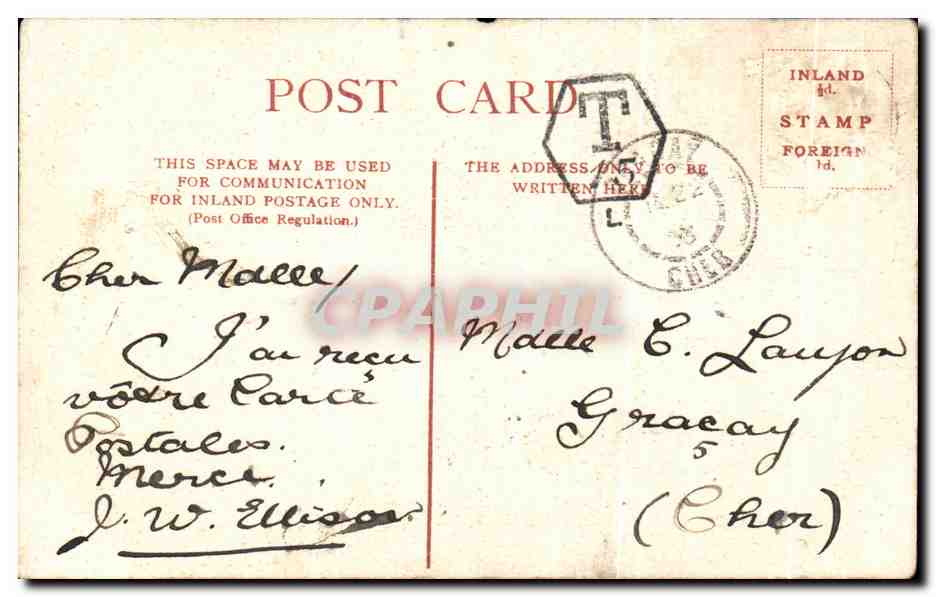 POST CARD
INLAND
½d.
STAMP
FOREIGN
1d.
THIS SPACE MAY BE USED
FOR COMMUNICATION
FOR INLAND POSTAGE ONLY.
(Post Office Regulation.)
THE ADDRESS ONLY TO BE
WRITTEN HERE
T
5
L
22
CHER
CPAPHIL
Cher Madlle/
J'ai reçu
vôtre Carte
Postales.
Merci.
J. W. Ellison
Mdlle C. Laujon
Graçay
(Cher)